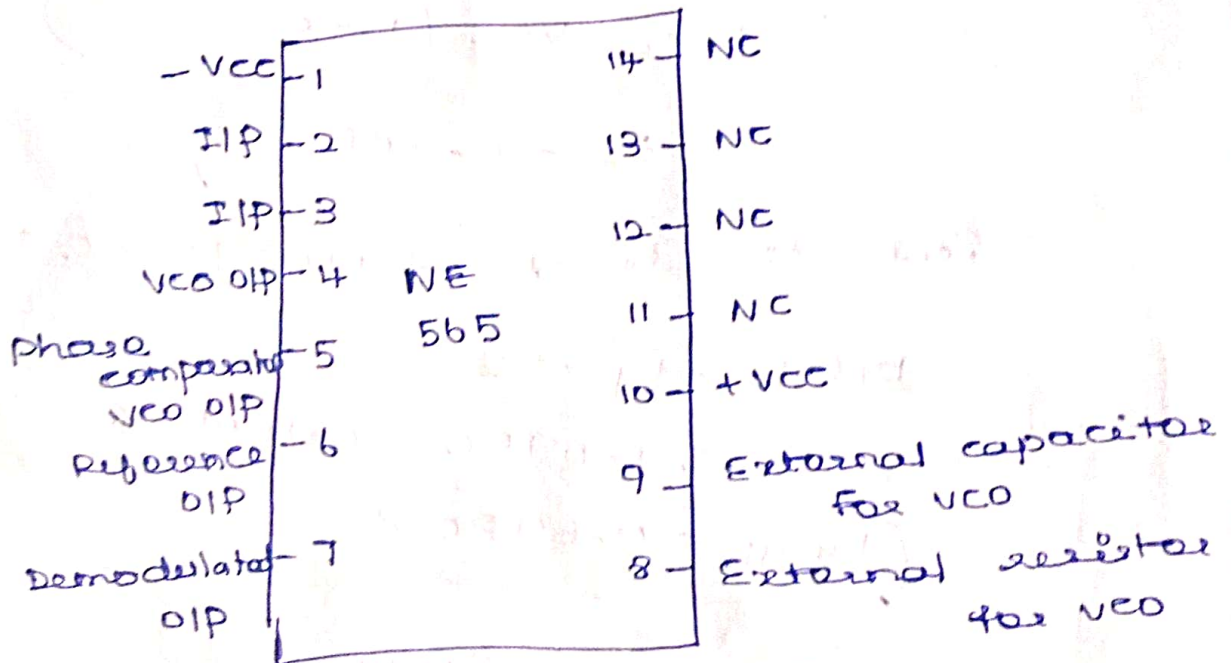 - VCC 1
I/P 2
I/P 3
VCO O/P 4
Phase
comparator 5
VCO O/P
Reference 6
O/P
Demodulated 7
O/P
NE
565
14 NC
13 NC
12 NC
11 NC
10 + VCC
9 External capacitor
For VCO
8 External resistor
for VCO